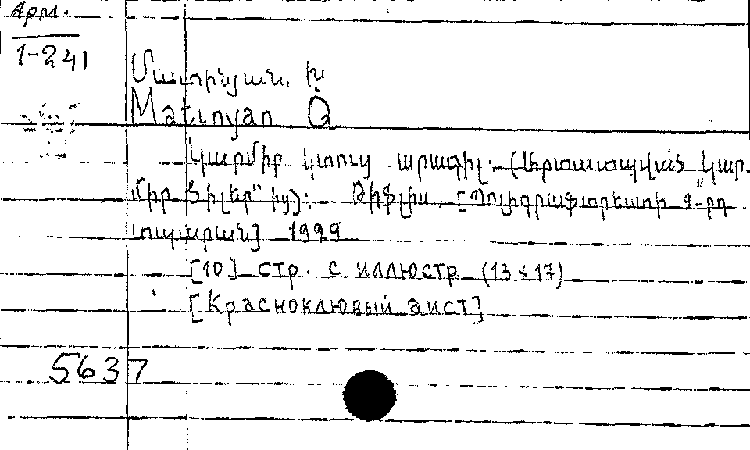 Арм.
1-241
Մատինյան, Ք
Matinyan Q
Կարմիր կտուց արագիլ. (Վերատպված Կար-
միր Ծիլեր" ից): Թիֆլիս, [Պոլիգրաֆտրեստի 2-րդ
տպարան] 1929
[10] стр. с иллюстр (13 x 17)
[Красноклювый аист]
5637